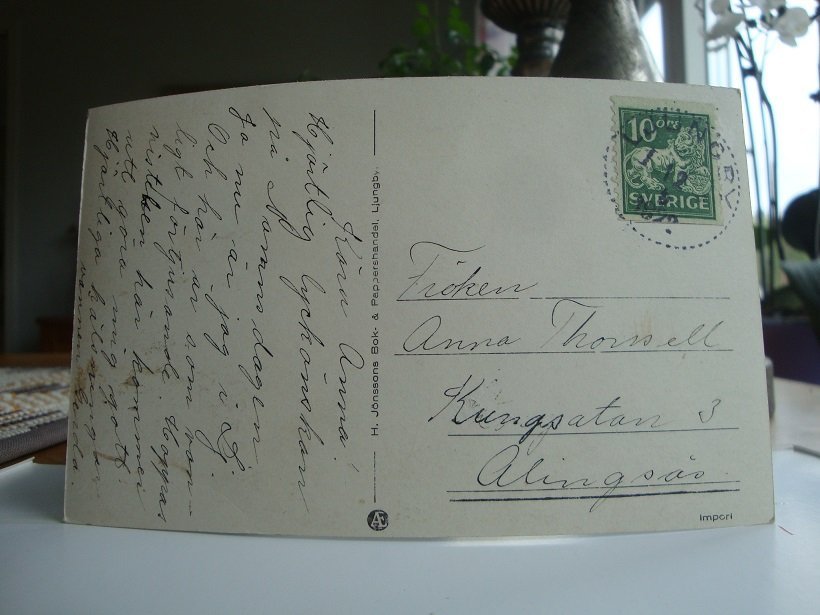 Kära Anna!
Hjärtlig lyckönskan
på Namnsdagen
Ja nu är jag i Lj.
Och här är som van-
ligt förtjusande. Hoppas
vistelsen här kommer
att göra mig gott.
Hjärtliga hälsningar
vännen Gerda.
H. Jönssons Bok- & Pappershandel, Ljungby.
10 ÖRE
SVERIGE
LJUNGBY
Fröken
Anna Thorsell
Kungsgatan 3
Alingsås.
Import